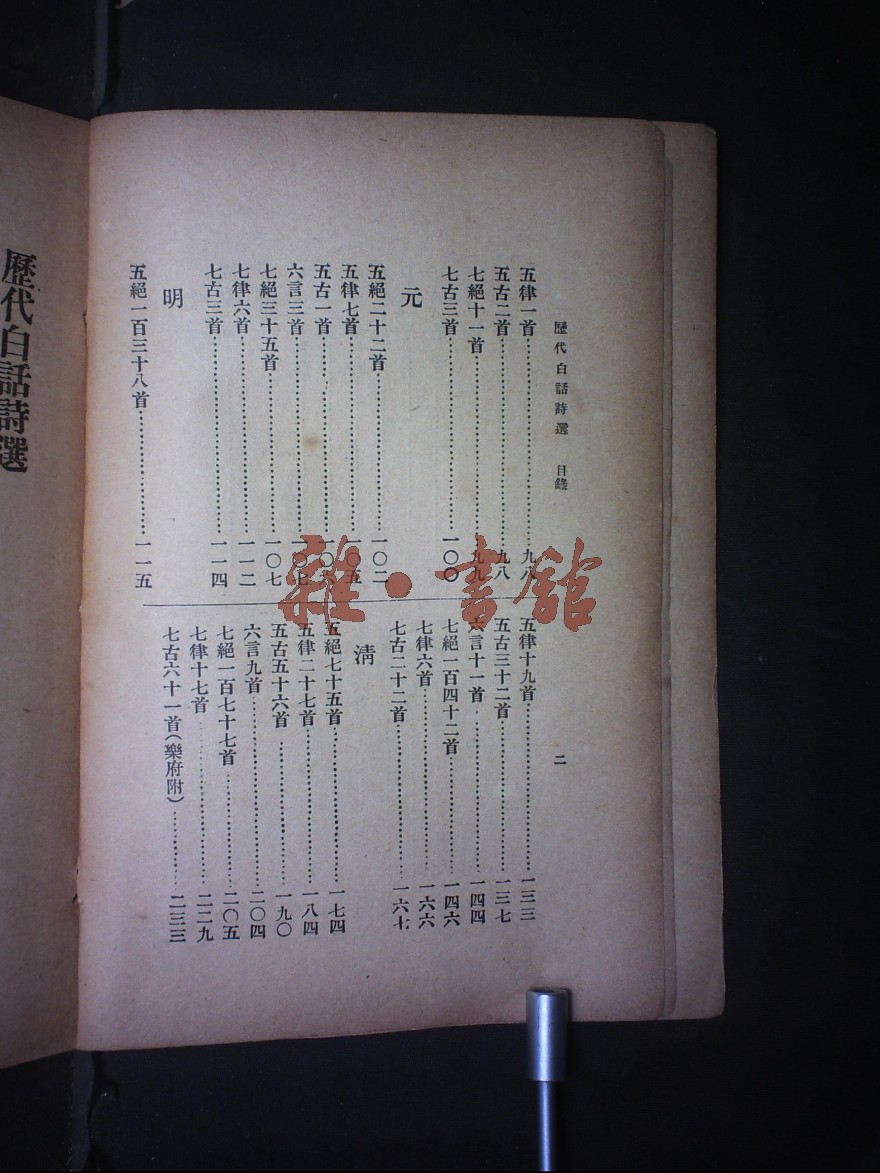 歷代白話詩選　目錄
二
五律一首……九八
五古二首……九八
七絕十一首……九九
七古三首……一〇〇
元
五絕二十二首……一〇二
五律七首……一〇五
五古一首……一〇六
六言三首……一〇七
七絕三十五首……一〇七
七律六首……一一二
七古三首……一一四
明
五絕一百三十八首……一一五
五律十九首……一三三
五古三十二首……一三七
六言十一首……一四四
七絕一百四十二首……一四六
七律六首……一六六
七古二十二首……一六七
清
五絕七十五首……一七四
五律二十七首……一八四
五古五十六首……一九〇
六言九首……二〇四
七絕一百七十七首……二〇五
七律十七首……二二九
七古六十一首(樂府附)……二三三
歷代白話詩選
雜·書館